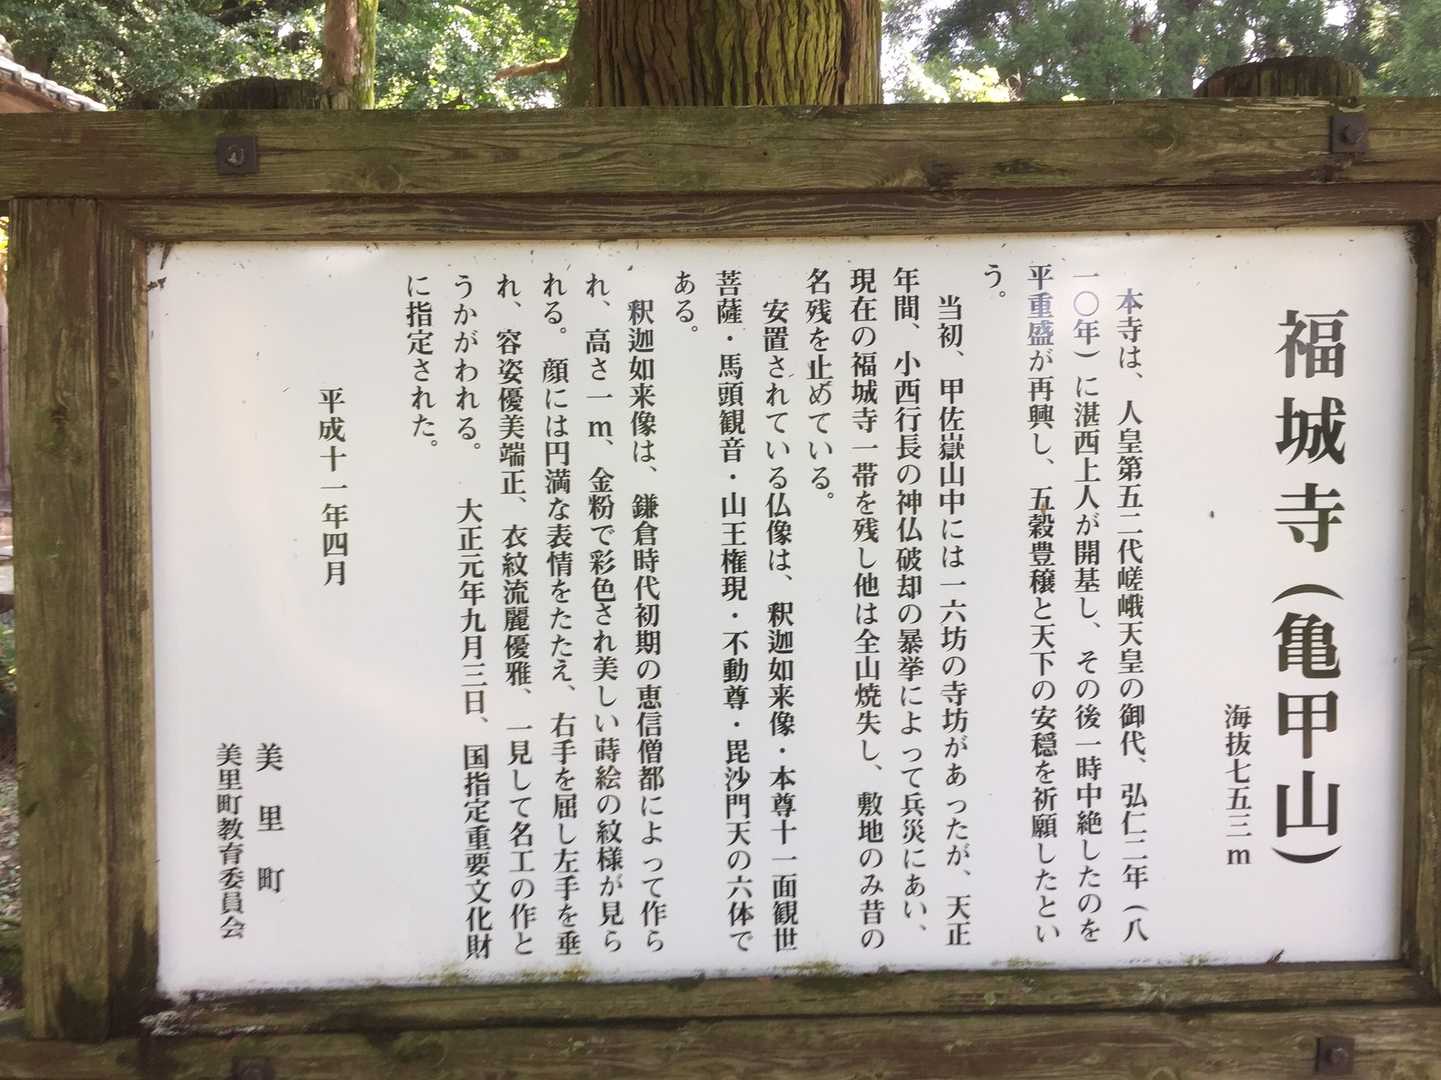 福城寺（亀甲山）
海抜七五三m
本寺は、人皇第五二代嵯峨天皇の御代、弘仁二年（八
一〇年）に湛西上人が開基し、その後一時中絶したのを
平重盛が再興し、五穀豊穣と天下の安穏を祈願したとい
う。
当初、甲佐嶽山中には一六坊の寺坊があったが、天正
年間、小西行長の神仏破却の暴挙によって兵災にあい、
現在の福城寺一帯を残し他は全山焼失し、敷地のみ昔の
名残を止めている。
安置されている仏像は、釈迦如来像・本尊十一面観世
菩薩・馬頭観音・山王権現・不動尊・毘沙門天の六体で
ある。
釈迦如来像は、鎌倉時代初期の恵信僧都によって作ら
れ、高さ一m、金粉で彩色され美しい蒔絵の紋様が見ら
れる。顔には円満な表情をたたえ、右手を屈し左手を垂
れ、容姿優美端正、衣紋流麗優雅、一見して名工の作と
うかがわれる。 大正元年九月三日、国指定重要文化財
に指定された。
平成十一年四月
美里町
美里町教育委員会